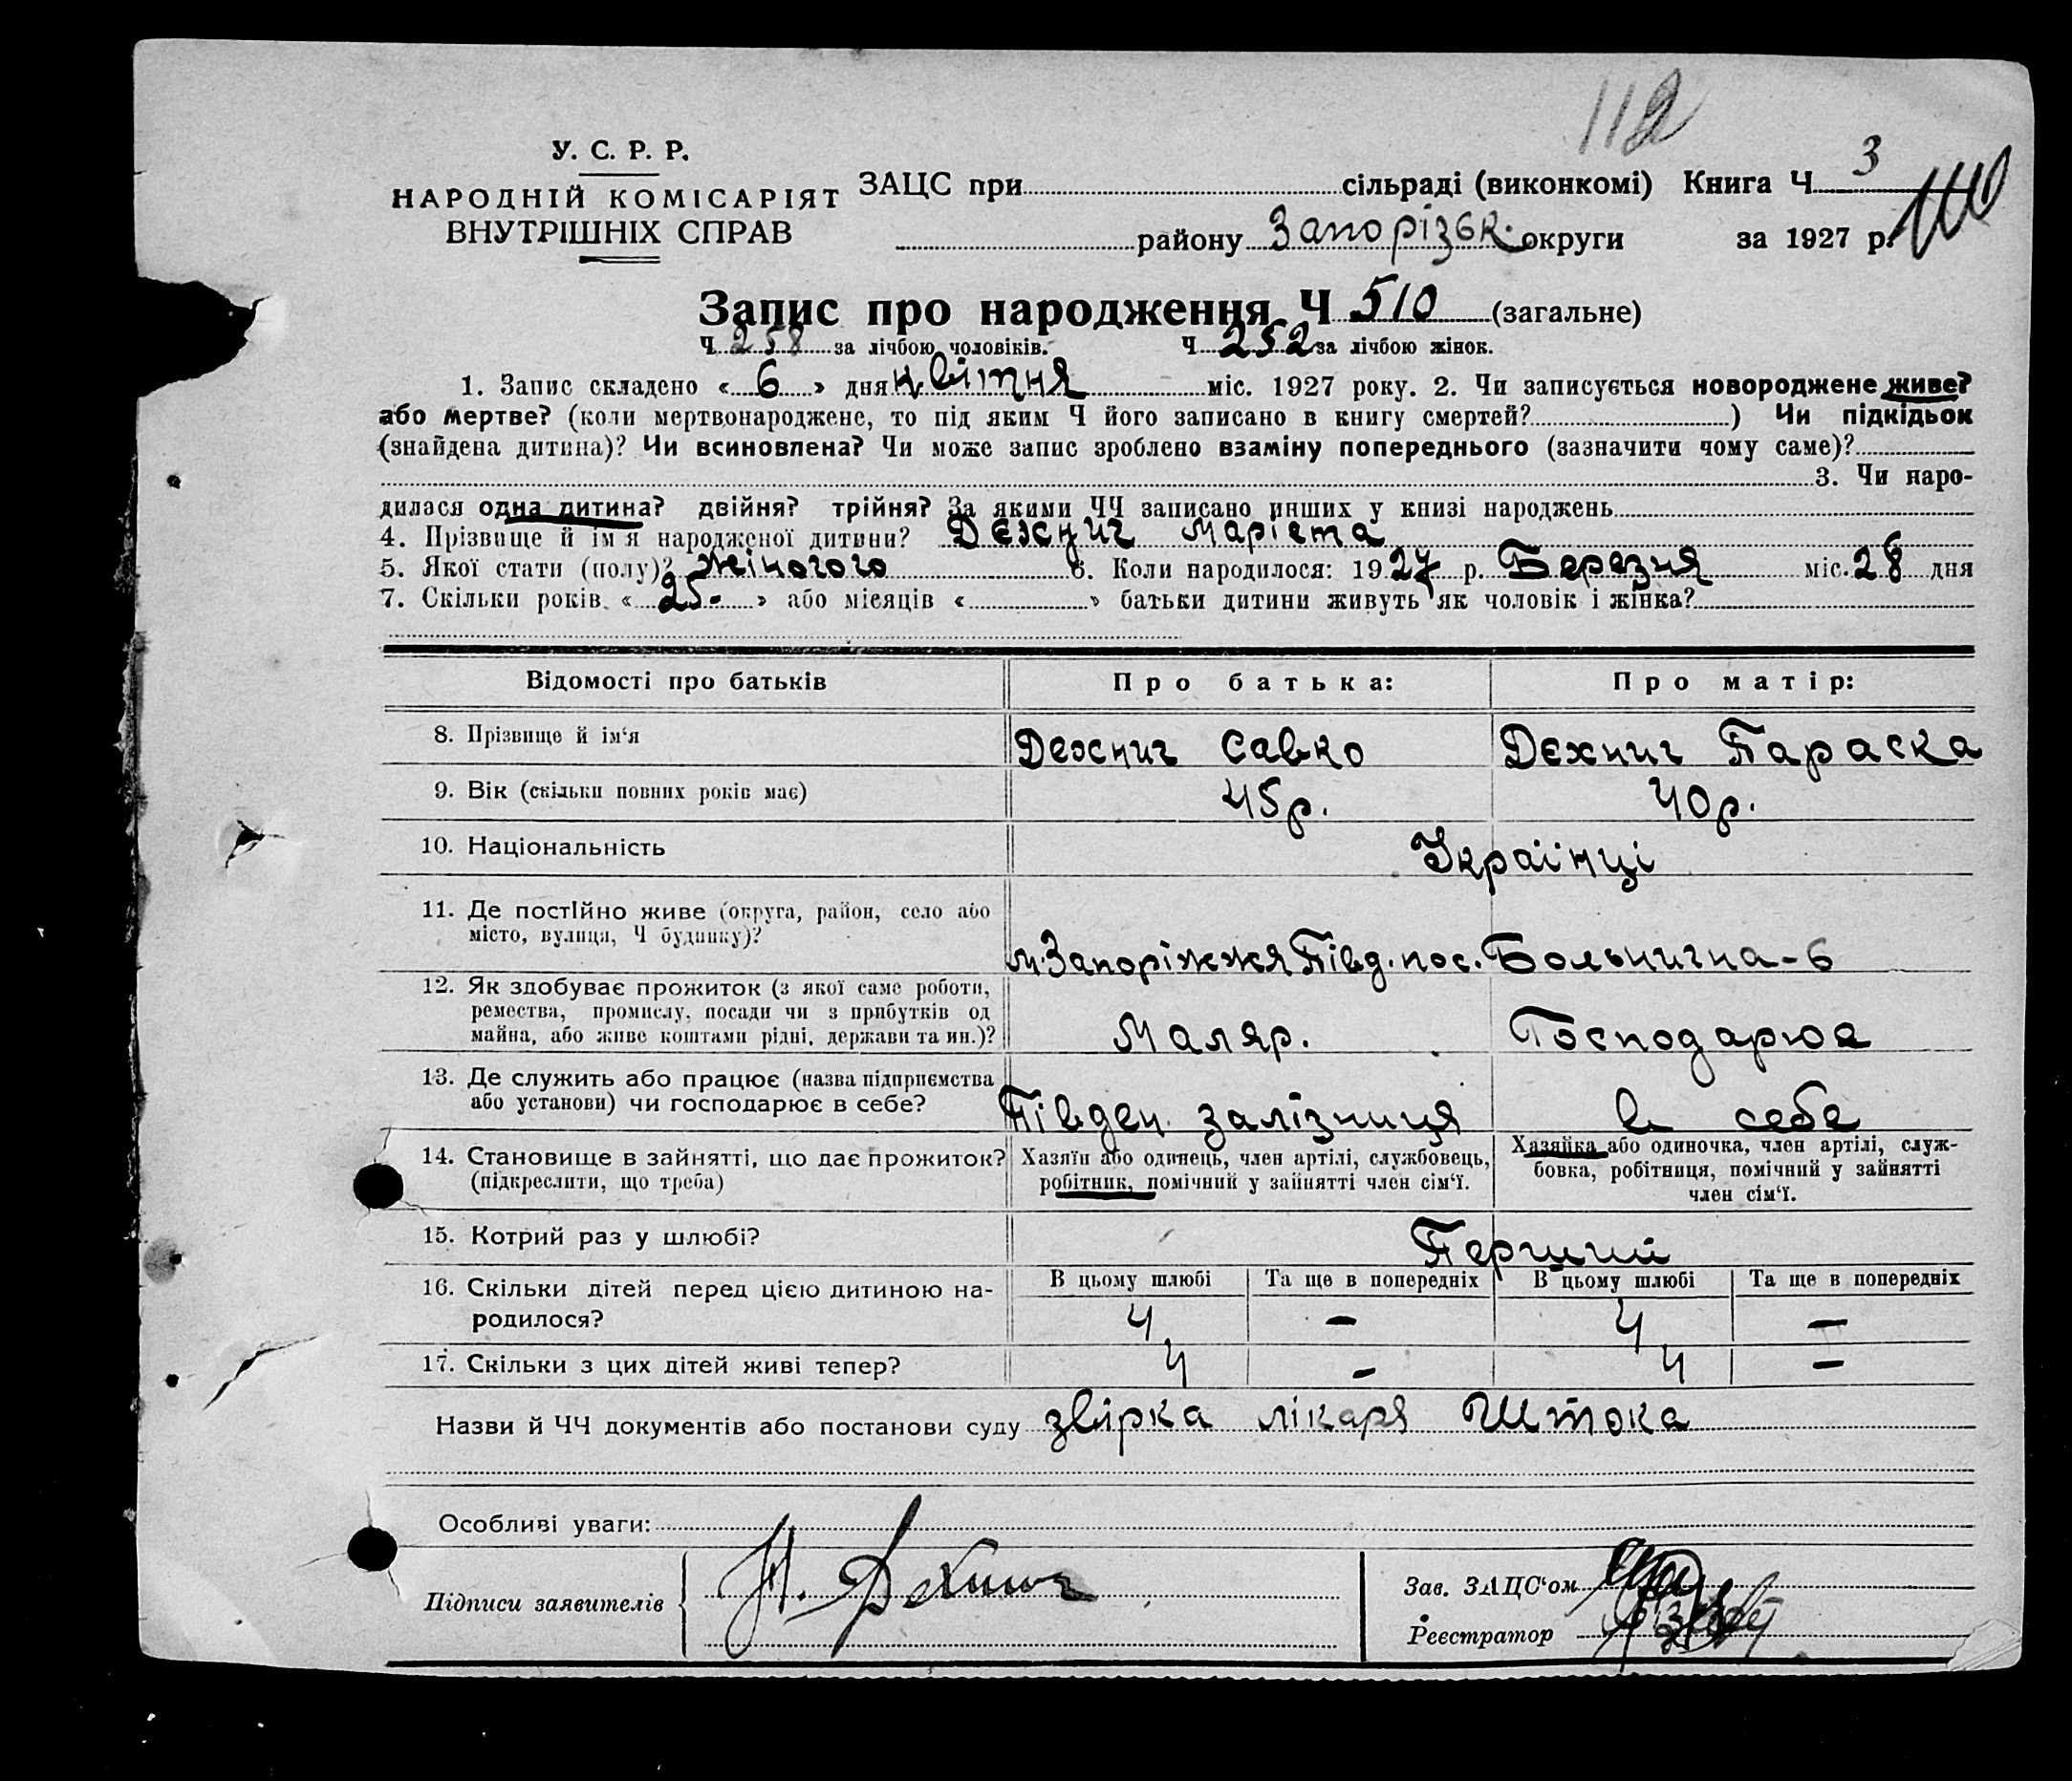 112
У. С. Р. Р.
НАРОДНІЙ КОМІСАРІЯТ
ВНУТРІШНІХ СПРАВ
ЗАЦС при сільраді (виконкомі) Книга Ч 3
110
району Запорізьк. округи за 1927 р.
Запис про народження Ч 510 (загальне)
Ч 258 за лічбою чоловіків. Ч 252 за лічбою жінок.
1. Запис складено « 6 » дня квітня міс. 1927 року. 2. Чи записується новороджене живе?
або мертве? (коли мертвонароджене, то під яким Ч його записано в книгу смертей? ) Чи підкідьок
(знайдена дитина)? Чи всиновлена? Чи може запис зроблено взаміну попереднього (зазначити чому саме)?
3. Чи наро-
дилася одна дитина? двійня? трійня? За якими ЧЧ записано инших у книзі народжень
4. Прізвище й ім'я народженої дитини? Дехнич Марієта
5. Якої стати (полу)? жіночого 6. Коли народилося: 1927 р. Березня міс. 28 дня
7. Скільки років « 25 » або місяців « » батьки дитини живуть як чоловік і жінка?
Відомості про батьків Про батька: Про матір:
8. Прізвище й ім'я Дехнич Савко Дехнич Параска
9. Вік (скільки повних років має) 45 р. 40 р.
10. Національність Українці
11. Де постійно живе (округа, район, село або
місто, вулиця, Ч будинку)? м. Запоріжжя Півд. пос. Больнична-6
12. Як здобуває прожиток (з якої саме роботи,
ремества, промислу, посади чи з прибутків од
майна, або живе коштами рідні, держави та ин.)? Маляр. Господарює
13. Де служить або працює (назва підприємства
або установи) чи господарює в себе? Півден. залізниця в себе
14. Становище в зайнятті, що дає прожиток?
(підкреслити, що треба)
Хазяїн або одинець, член артілі, службовець,
робітник, помічний у зайнятті член сім'ї.
Хазяйка або одиночка, член артілі, служ-
бовка, робітниця, помічний у зайнятті
член сім'ї.
15. Котрий раз у шлюбі? Перший
В цьому шлюбі Та ще в попередніх В цьому шлюбі Та ще в попередніх
16. Скільки дітей перед цією дитиною на-
родилося? 4 – 4 –
17. Скільки з цих дітей живі тепер? 4 – 4 –
Назви й ЧЧ документів або постанови суду звірка лікаря Штока
Особливі уваги:
Підписи заявителів Дехнич
Зав. ЗАЦС'ом
Реєстратор